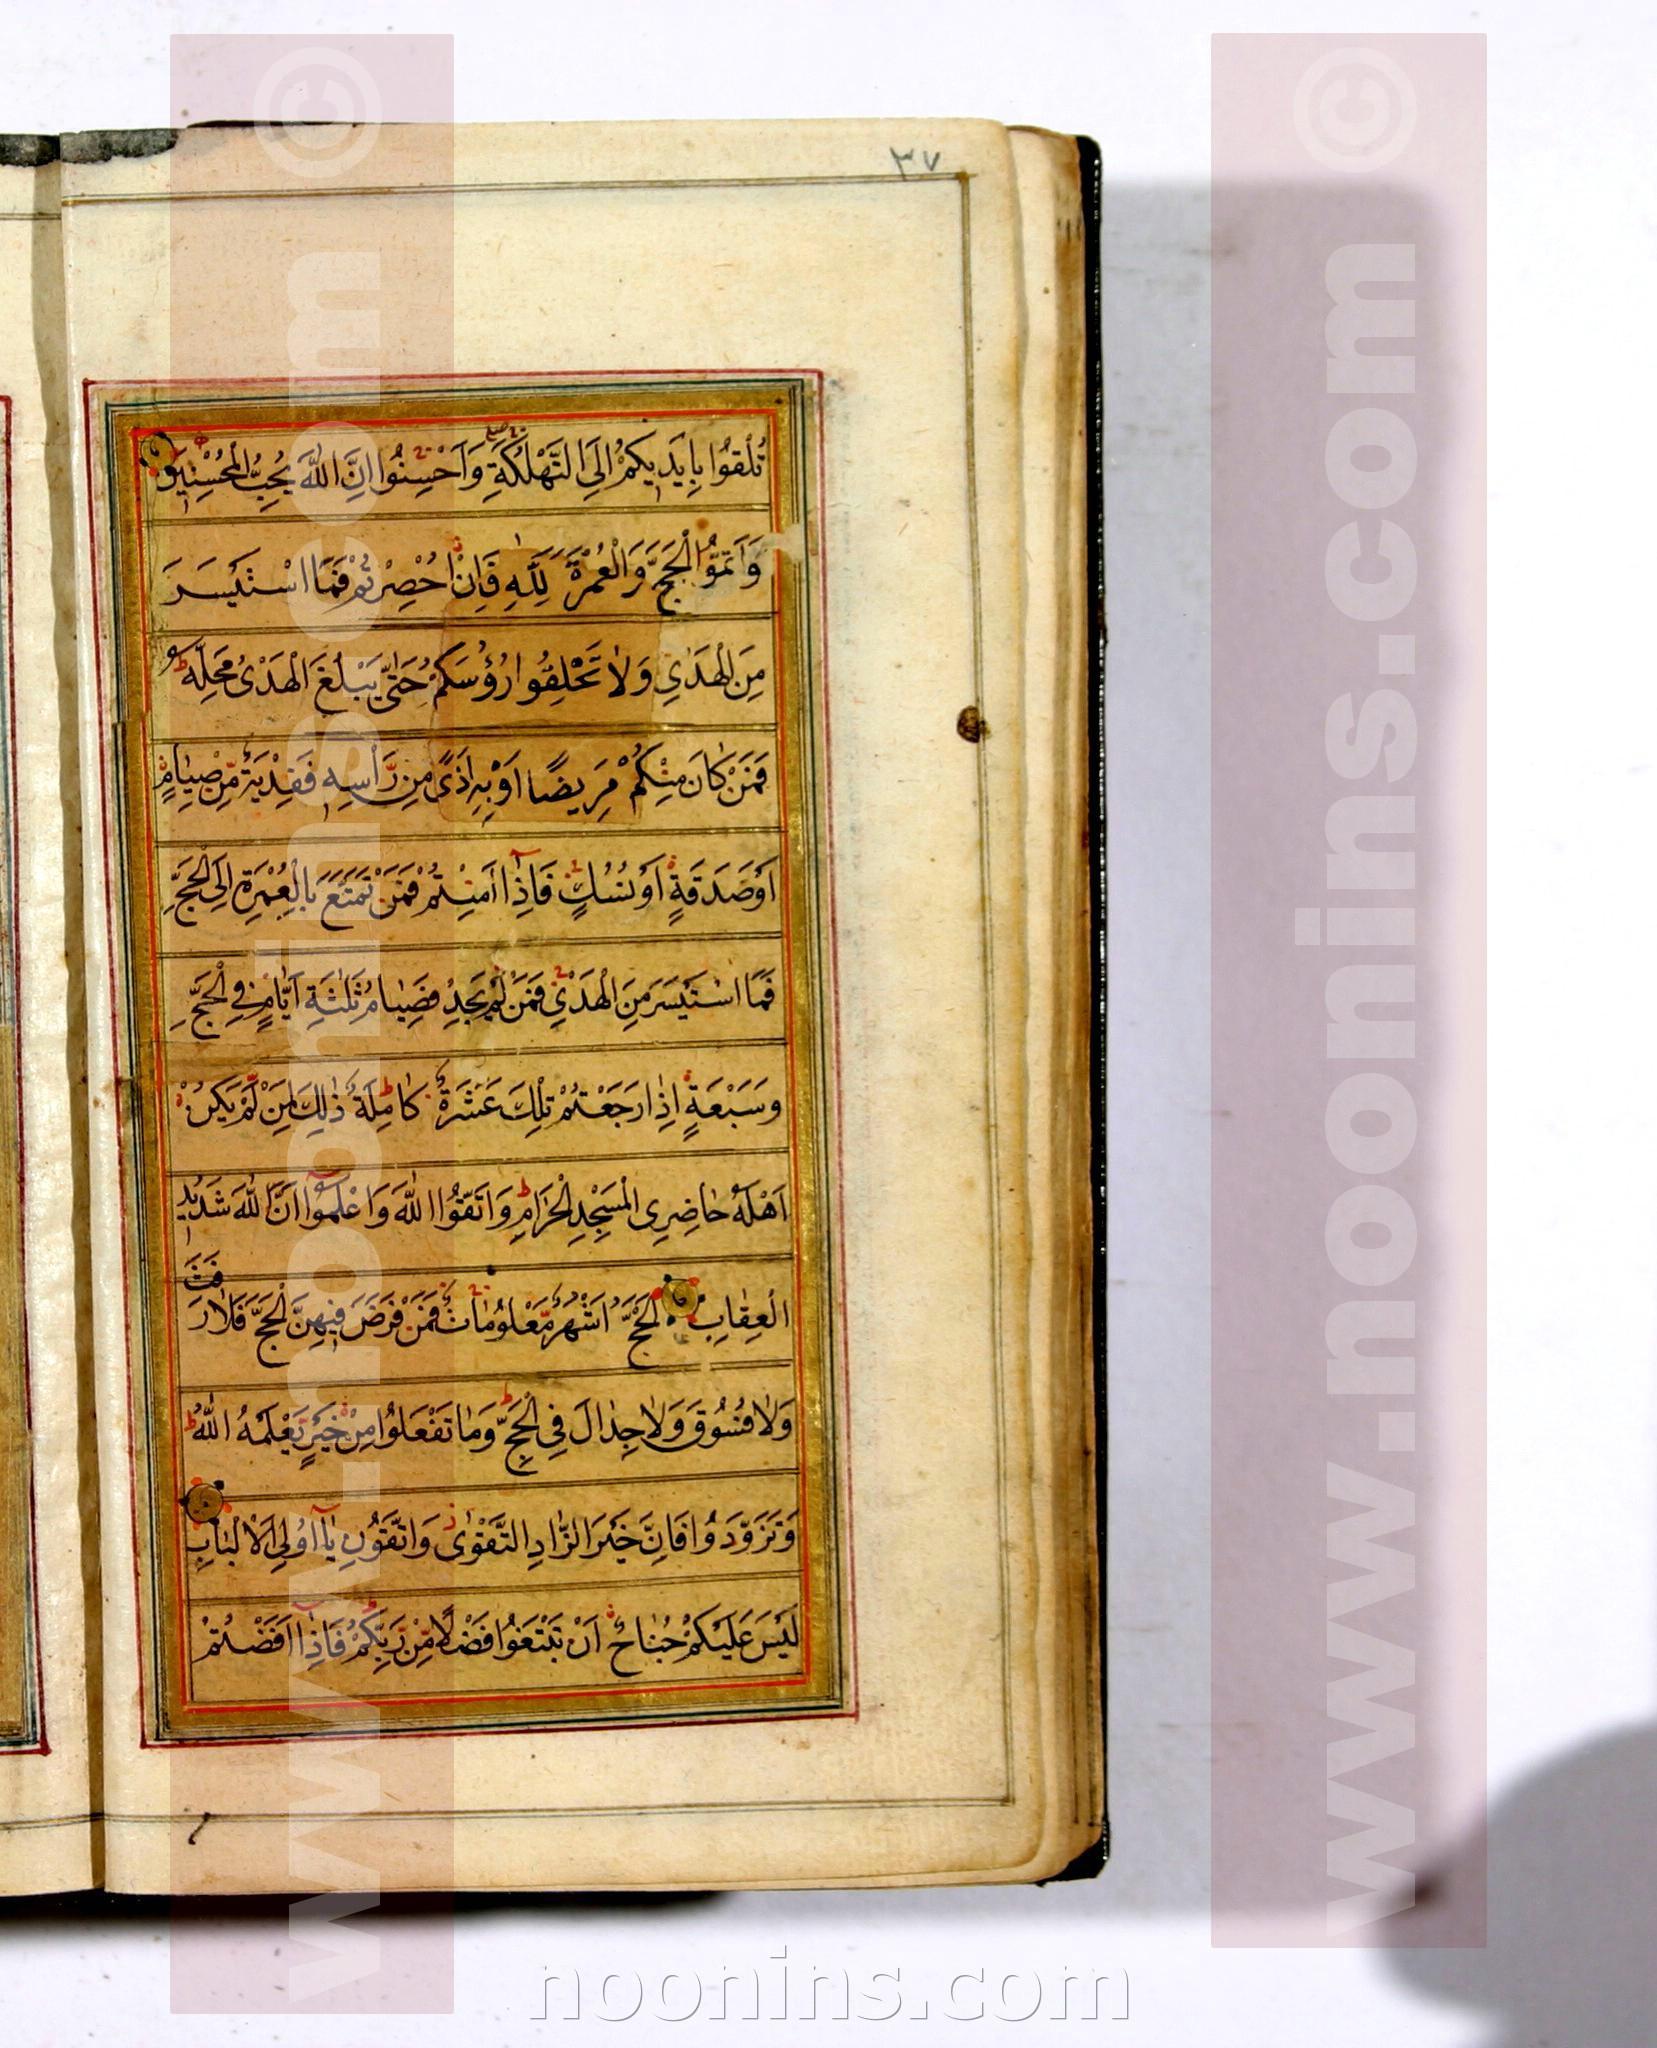 ٣٧
تُلْقُوا بِاَيْدِيكُمْ اِلَى التَّهْلُكَةِ وَاَحْسِنُوا اِنَّ اللّٰهَ يُحِبُّ الْمُحْسِنِينَ
وَاَتِمُّوا الْحَجَّ وَالْعُمْرَةَ لِلّٰهِ فَاِنْ اُحْصِرْتُمْ فَمَا اسْتَيْسَرَ
مِنَ الْهَدْيِ وَلَا تَحْلِقُوا رُؤُسَكُمْ حَتّٰى يَبْلُغَ الْهَدْىُ مَحِلَّهُ
فَمَنْ كَانَ مِنْكُمْ مَرِيضًا اَوْ بِهِ اَذًى مِنْ رَأْسِهِ فَفِدْيَةٌ مِنْ صِيٰامٍ
اَوْ صَدَقَةٍ اَوْ نُسُكٍ فَاِذَا اَمِنْتُمْ فَمَنْ تَمَتَّعَ بِالْعُمْرَةِ اِلَى الْحَجِّ
فَمَا اسْتَيْسَرَ مِنَ الْهَدْيِ فَمَنْ لَمْ يَجِدْ فَصِيٰامُ ثَلٰثَةِ اَيّٰامٍ فِي الْحَجِّ
وَسَبْعَةٍ اِذٰا رَجَعْتُمْ تِلْكَ عَشَرَةٌ كٰامِلَةٌ ذٰلِكَ لِمَنْ لَمْ يَكُنْ
اَهْلُهُ حٰاضِرِى الْمَسْجِدِ الْحَرٰامِ وَاتَّقُوا اللّٰهَ وَاعْلَمُوا اَنَّ اللّٰهَ شَدِيدُ
الْعِقٰابِ اَلْحَجُّ اَشْهُرٌ مَعْلُومٰاتٌ فَمَنْ فَرَضَ فِيهِنَّ الْحَجَّ فَلٰا رَفَثَ
وَلٰا فُسُوقَ وَلٰا جِدٰالَ فِي الْحَجِّ وَمٰا تَفْعَلُوا مِنْ خَيْرٍ يَعْلَمْهُ اللّٰهُ
وَتَزَوَّدُوا فَاِنَّ خَيْرَ الزّٰادِ التَّقْوٰى وَاتَّقُونِ يٰا اُولِى الْاَلْبٰابِ
لَيْسَ عَلَيْكُمْ جُنٰاحٌ اَنْ تَبْتَغُوا فَضْلًا مِنْ رَبِّكُمْ فَاِذٰا اَفَضْتُمْ
www.noonins.com ©
www.noonins.com ©
noonins.com